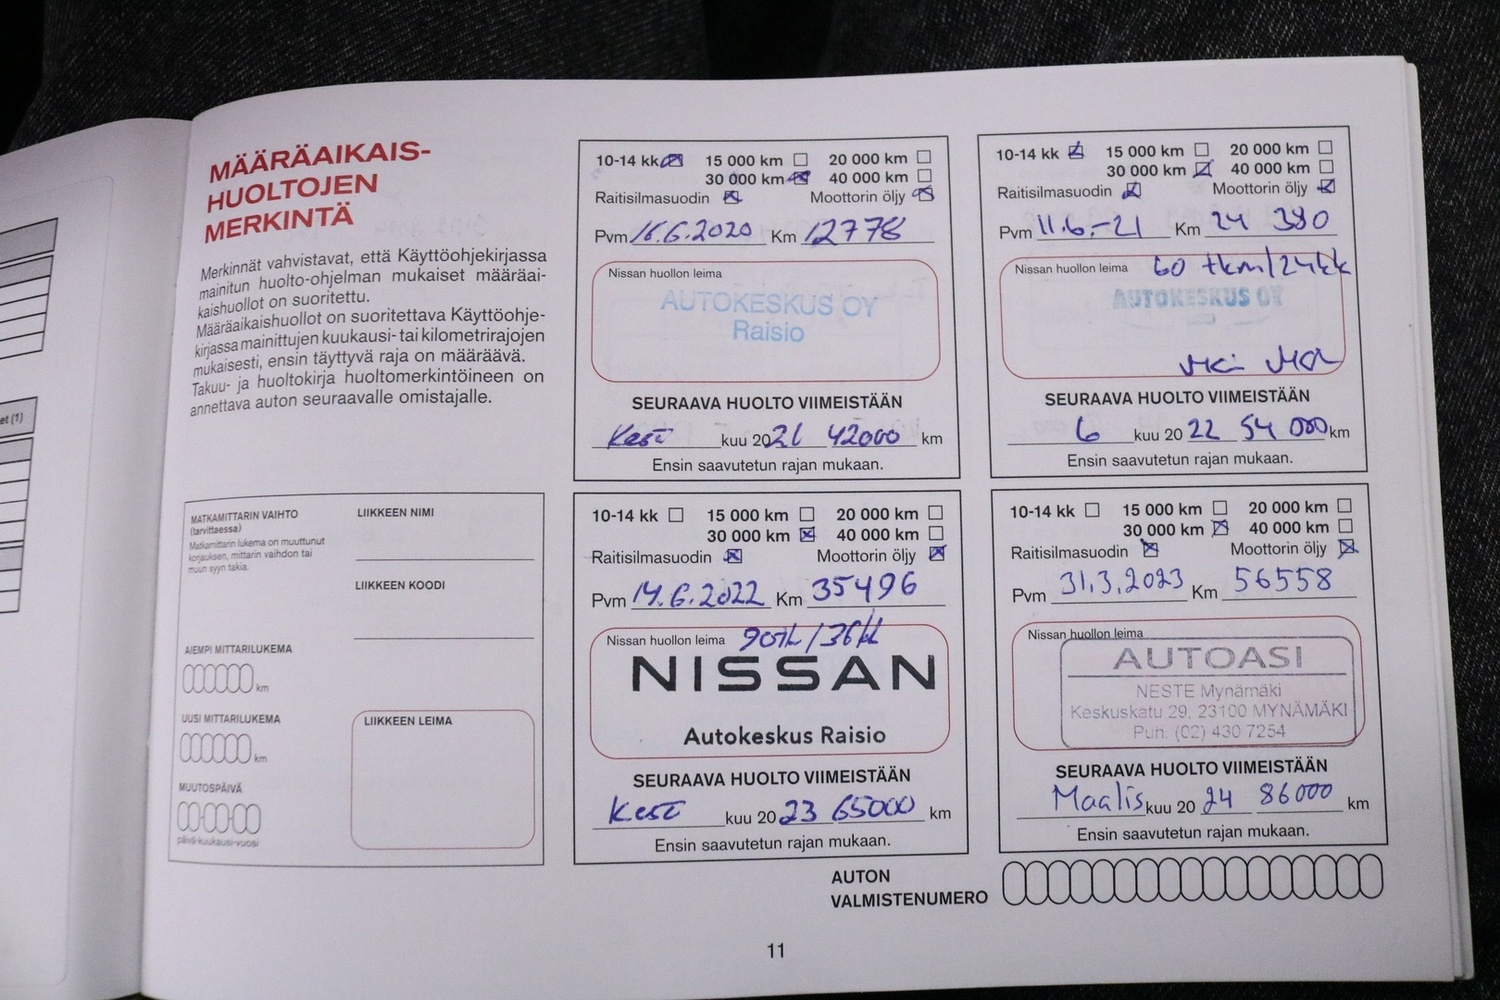 MÄÄRÄAIKAIS-
HUOLTOJEN
MERKINTÄ
Merkinnät vahvistavat, että Käyttöohjekirjassa
mainitun huolto-ohjelman mukaiset määräai-
kaishuollot on suoritettu.
Määräaikaishuollot on suoritettava Käyttöohje-
kirjassa mainittujen kuukausi- tai kilometrirajojen
mukaisesti, ensin täyttyvä raja on määräävä.
Takuu- ja huoltokirja huoltomerkintöineen on
annettava auton seuraavalle omistajalle.
et (1)
MATKAMITTARIN VAIHTO
(tarvittaessa)
Matkamittarin lukema on muuttunut
korjauksen, mittarin vaihdon tai
muun syyn takia.
LIIKKEEN NIMI
LIIKKEEN KOODI
AIEMPI MITTARILUKEMA
km
UUSI MITTARILUKEMA
km
MUUTOSPÄIVÄ
päivä-kuukausi-vuosi
LIIKKEEN LEIMA
10-14 kk 15 000 km 20 000 km
30 000 km 40 000 km
Raitisilmasuodin Moottorin öljy
Pvm 16.6.2020 Km 12778
Nissan huollon leima
AUTOKESKUS OY
Raisio
SEURAAVA HUOLTO VIIMEISTÄÄN
Kesä kuu 2021 42000 km
Ensin saavutetun rajan mukaan.
10-14 kk 15 000 km 20 000 km
30 000 km 40 000 km
Raitisilmasuodin Moottorin öljy
Pvm 11.6.-21 Km 24 380
Nissan huollon leima 60 tkm/24kk
AUTOKESKUS OY
SEURAAVA HUOLTO VIIMEISTÄÄN
6 kuu 2022 54 000 km
Ensin saavutetun rajan mukaan.
10-14 kk 15 000 km 20 000 km
30 000 km 40 000 km
Raitisilmasuodin Moottorin öljy
Pvm 14.6.2022 Km 35496
Nissan huollon leima
NISSAN
Autokeskus Raisio
SEURAAVA HUOLTO VIIMEISTÄÄN
Kesä kuu 2023 65000 km
Ensin saavutetun rajan mukaan.
10-14 kk 15 000 km 20 000 km
30 000 km 40 000 km
Raitisilmasuodin Moottorin öljy
Pvm 31.3.2023 Km 56558
Nissan huollon leima
AUTOASI
NESTE Mynämäki
Keskuskatu 29, 23100 MYNÄMÄKI
Puh. (02) 430 7254
SEURAAVA HUOLTO VIIMEISTÄÄN
Maalis kuu 2024 86000 km
Ensin saavutetun rajan mukaan.
AUTON
VALMISTENUMERO
11